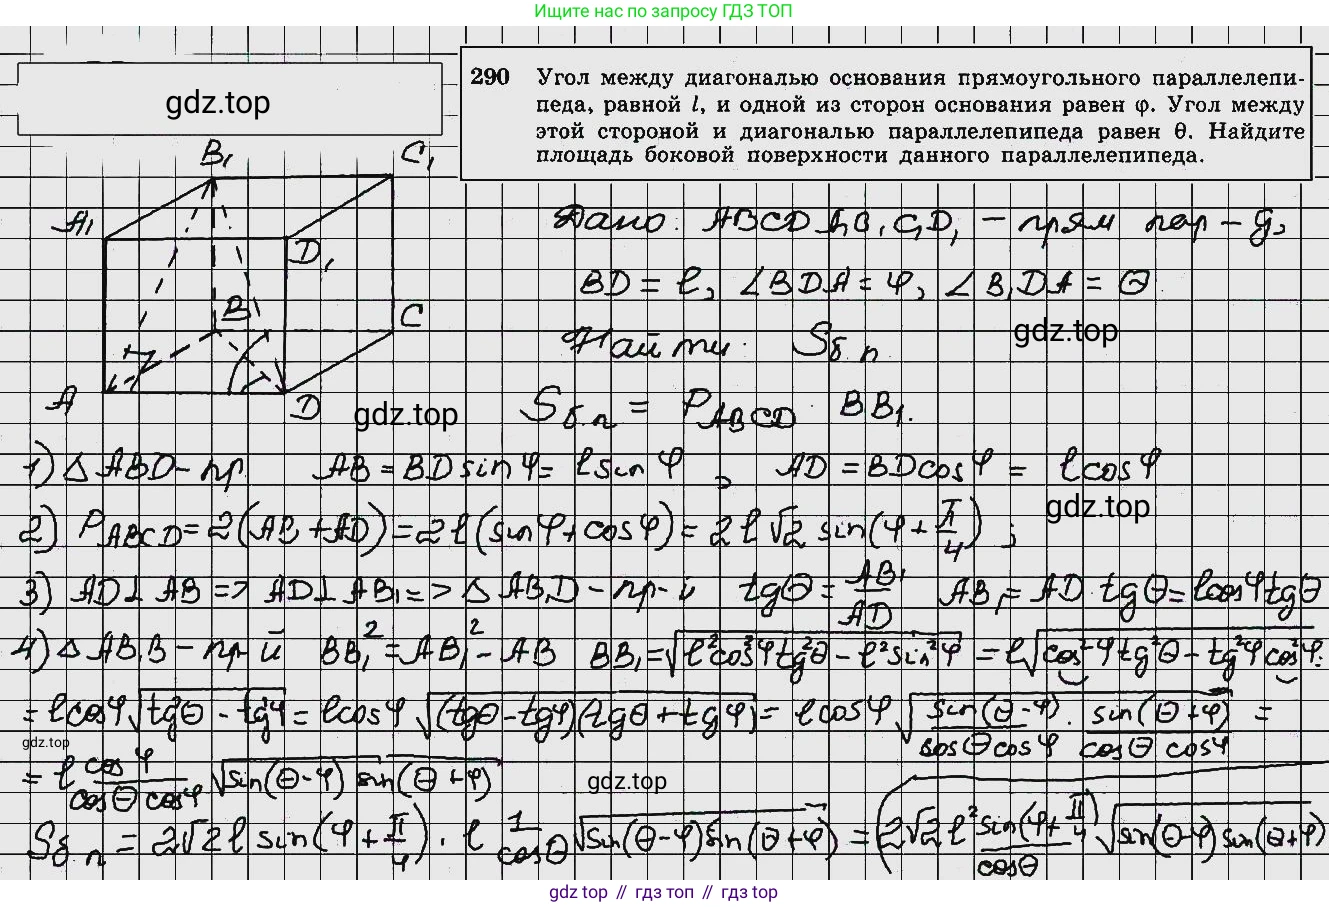 Ищите нас по запросу ГДЗ ТОП
gdz.top
290 Угол между диагональю основания прямоугольного параллелепи-
педа, равной l, и одной из сторон основания равен φ. Угол между
этой стороной и диагональю параллелепипеда равен θ. Найдите
площадь боковой поверхности данного параллелепипеда.
B₁ C₁
A₁ D₁
B C
A D
Дано: ABCDA₁B₁C₁D₁ – прям пар-д,
BD = l, ∠BDA = φ, ∠B₁DA = Θ
gdz.top
Найти: Sб.п.
gdz.top
Sб.п. = P_ABCD BB₁.
1) △ABD – пр. AB = BD sin φ = l sin φ, AD = BD cos φ = l cos φ
gdz.top
2) P_ABCD = 2(AB + AD) = 2l(sin φ + cos φ) = 2l√2 sin(φ + π/4);
3) AD⊥AB => AD⊥AB₁ => △AB₁D – пр-й tgΘ = AB₁/AD AB₁ = AD · tgΘ = l cos φ tgΘ
4) △AB₁B – пр-й BB₁² = AB₁² - AB BB₁ = √(l²cos²φ tg²Θ - l²sin²φ) = l√(cos²φ tg²Θ - tg²φ cos²φ) =
= l cos φ √(tg²Θ - tg²φ) = l cos φ √((tgΘ - tgφ)(tgΘ + tgφ)) = l cos φ √(sin(Θ-φ)/(cosΘ cosφ) · sin(Θ+φ)/(cosΘ cosφ)) =
gdz.top
= l cos φ/(cosΘ cosφ) √(sin(Θ-φ) sin(Θ+φ))
gdz.top
Sб.п = 2√2 l sin(φ + π/4) · l 1/cosΘ √(sin(Θ-φ) sin(Θ+φ)) = (2√2 l² sin(φ + π/4)/cosΘ √(sin(Θ-φ) sin(Θ+φ))
gdz top // гдз топ // гдз top